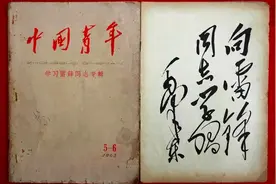 中国青年
学习雷锋同志专辑
5-6
1963
向雷锋
同志学习
毛泽东